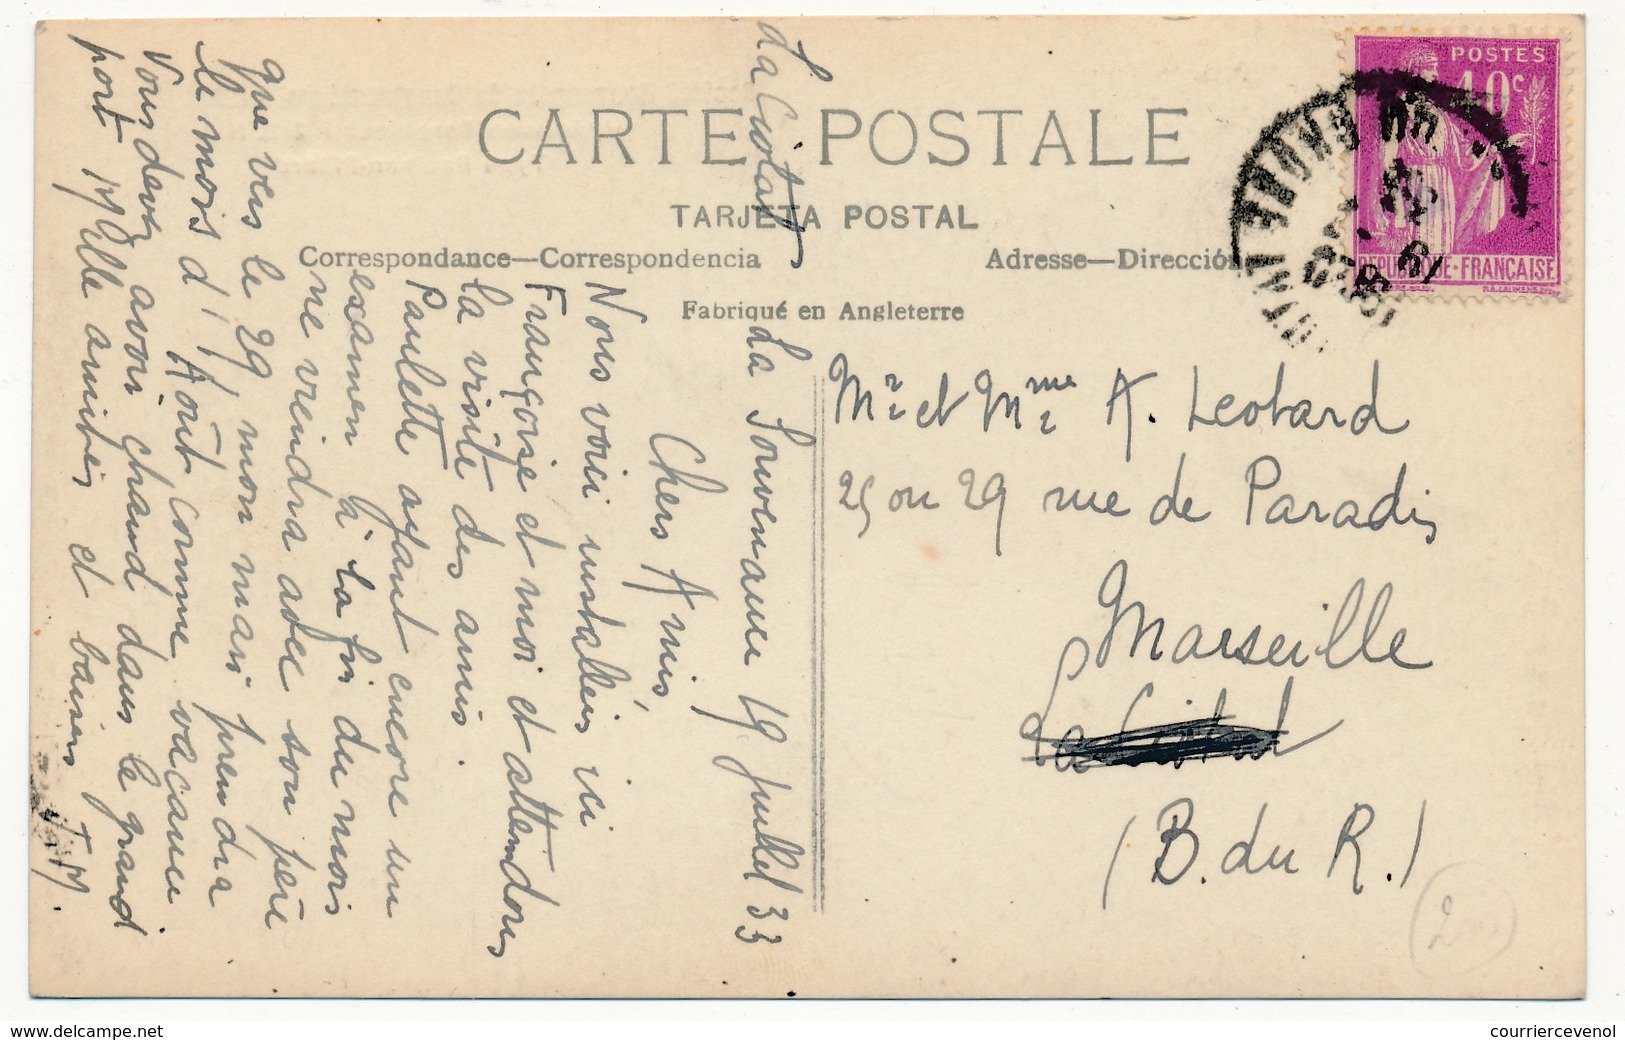 CARTE POSTALE
TARJETA POSTAL
Correspondance—Correspondencia
Adresse—Dirección
Fabriqué en Angleterre
POSTES
40c
REPUBLIQUE·FRANÇAISE
La Ciotat
La Souvenance 19 Juillet 33
Chers Amis,
Nous voici installées ici
Françoise et moi et attendons
la visite des amis.
Paulette ayant encore un
examen à la fin du mois
ne viendra avec son père
que vers le 29, mon mari prendra
le mois d'Août comme vacances
Vous devez avoir chaud dans le grand
port Mille amitiés et baisers
Mr et Mme A. Leotard
25 ou 29 rue de Paradis
Marseille
La Ciotat
(B. du R.)
www.delcampe.net
courriercevenol